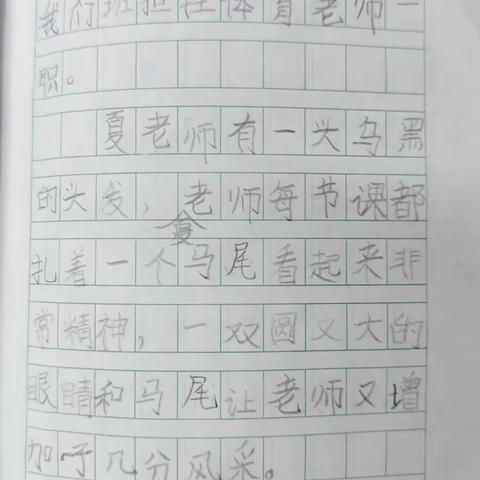 我们班担任体育老师一
职。
夏老师有一头乌黑
的头发，夏老师每节课都
扎着一个马尾看起来非
常精神，一双圆又大的
眼睛和马尾让老师又增
加了几分风采。